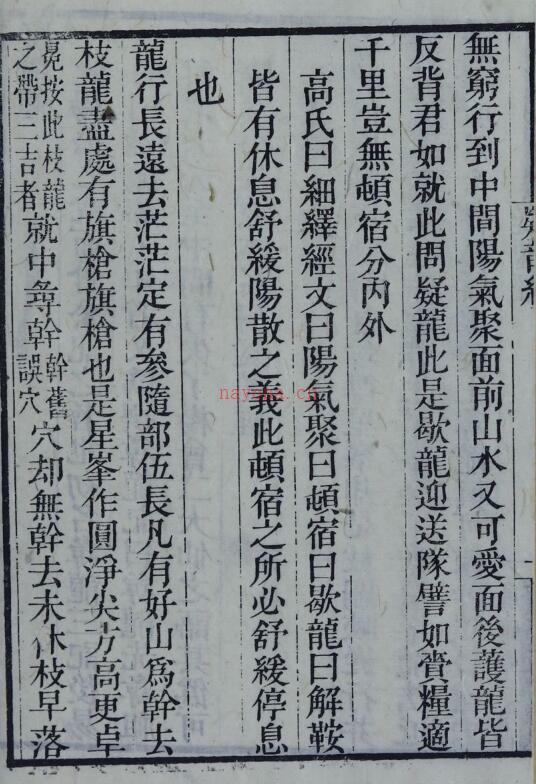 無窮行到中間陽氣聚面前山水又可愛面後護龍皆
反背君如就此問疑龍此是歇龍迎送隊譬如賫糧適
千里豈無頓宿分內外
高氏曰細繹經文曰陽氣聚曰頓宿曰歇龍曰解鞍
皆有休息舒緩陽散之義此頓宿之所必舒緩停息
也
龍行長遠去茫茫定有參隨部伍長凡有好山爲幹去
枝龍盡處有旗槍旗槍也是星峯作圓淨尖方高更卓
晃按此枝龍之帶三吉者就中尋幹幹舊誤穴穴却無幹去未休枝早落
nayona.cn